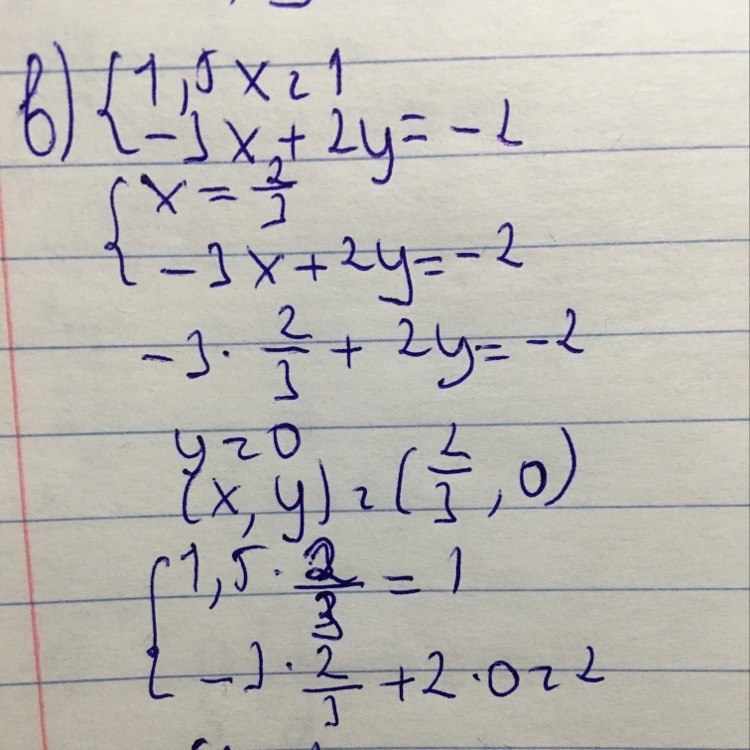 в) { 1,5x = 1
-3x + 2y = -2
{ x = 2/3
-3x + 2y = -2
-3 · 2/3 + 2y = -2
y = 0
(x, y) = (2/3, 0)
{ 1,5 · 2/3 = 1
-3 · 2/3 + 2 · 0 = 2